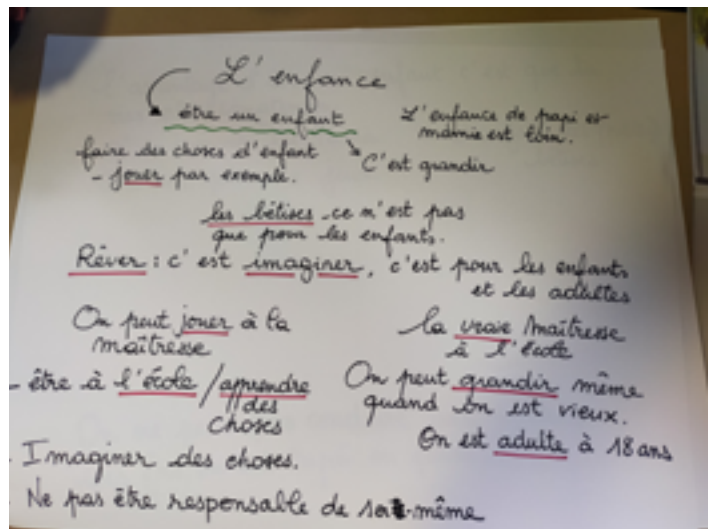 L'enfance
être un enfant
L'enfance de papi et
mamie est loin.
faire des choses d'enfant
- jouer par exemple.
C'est grandir
les bêtises ce n'est pas
que pour les enfants.
Rêver : c'est imaginer, c'est pour les enfants
et les adultes
On peut jouer à la
maîtresse
la vraie maîtresse
à l'école
- être à l'école / apprendre
des
choses
On peut grandir même
quand on est vieux.
On est adulte à 18 ans
- Imaginer des choses.
- Ne pas être responsable de soi-même